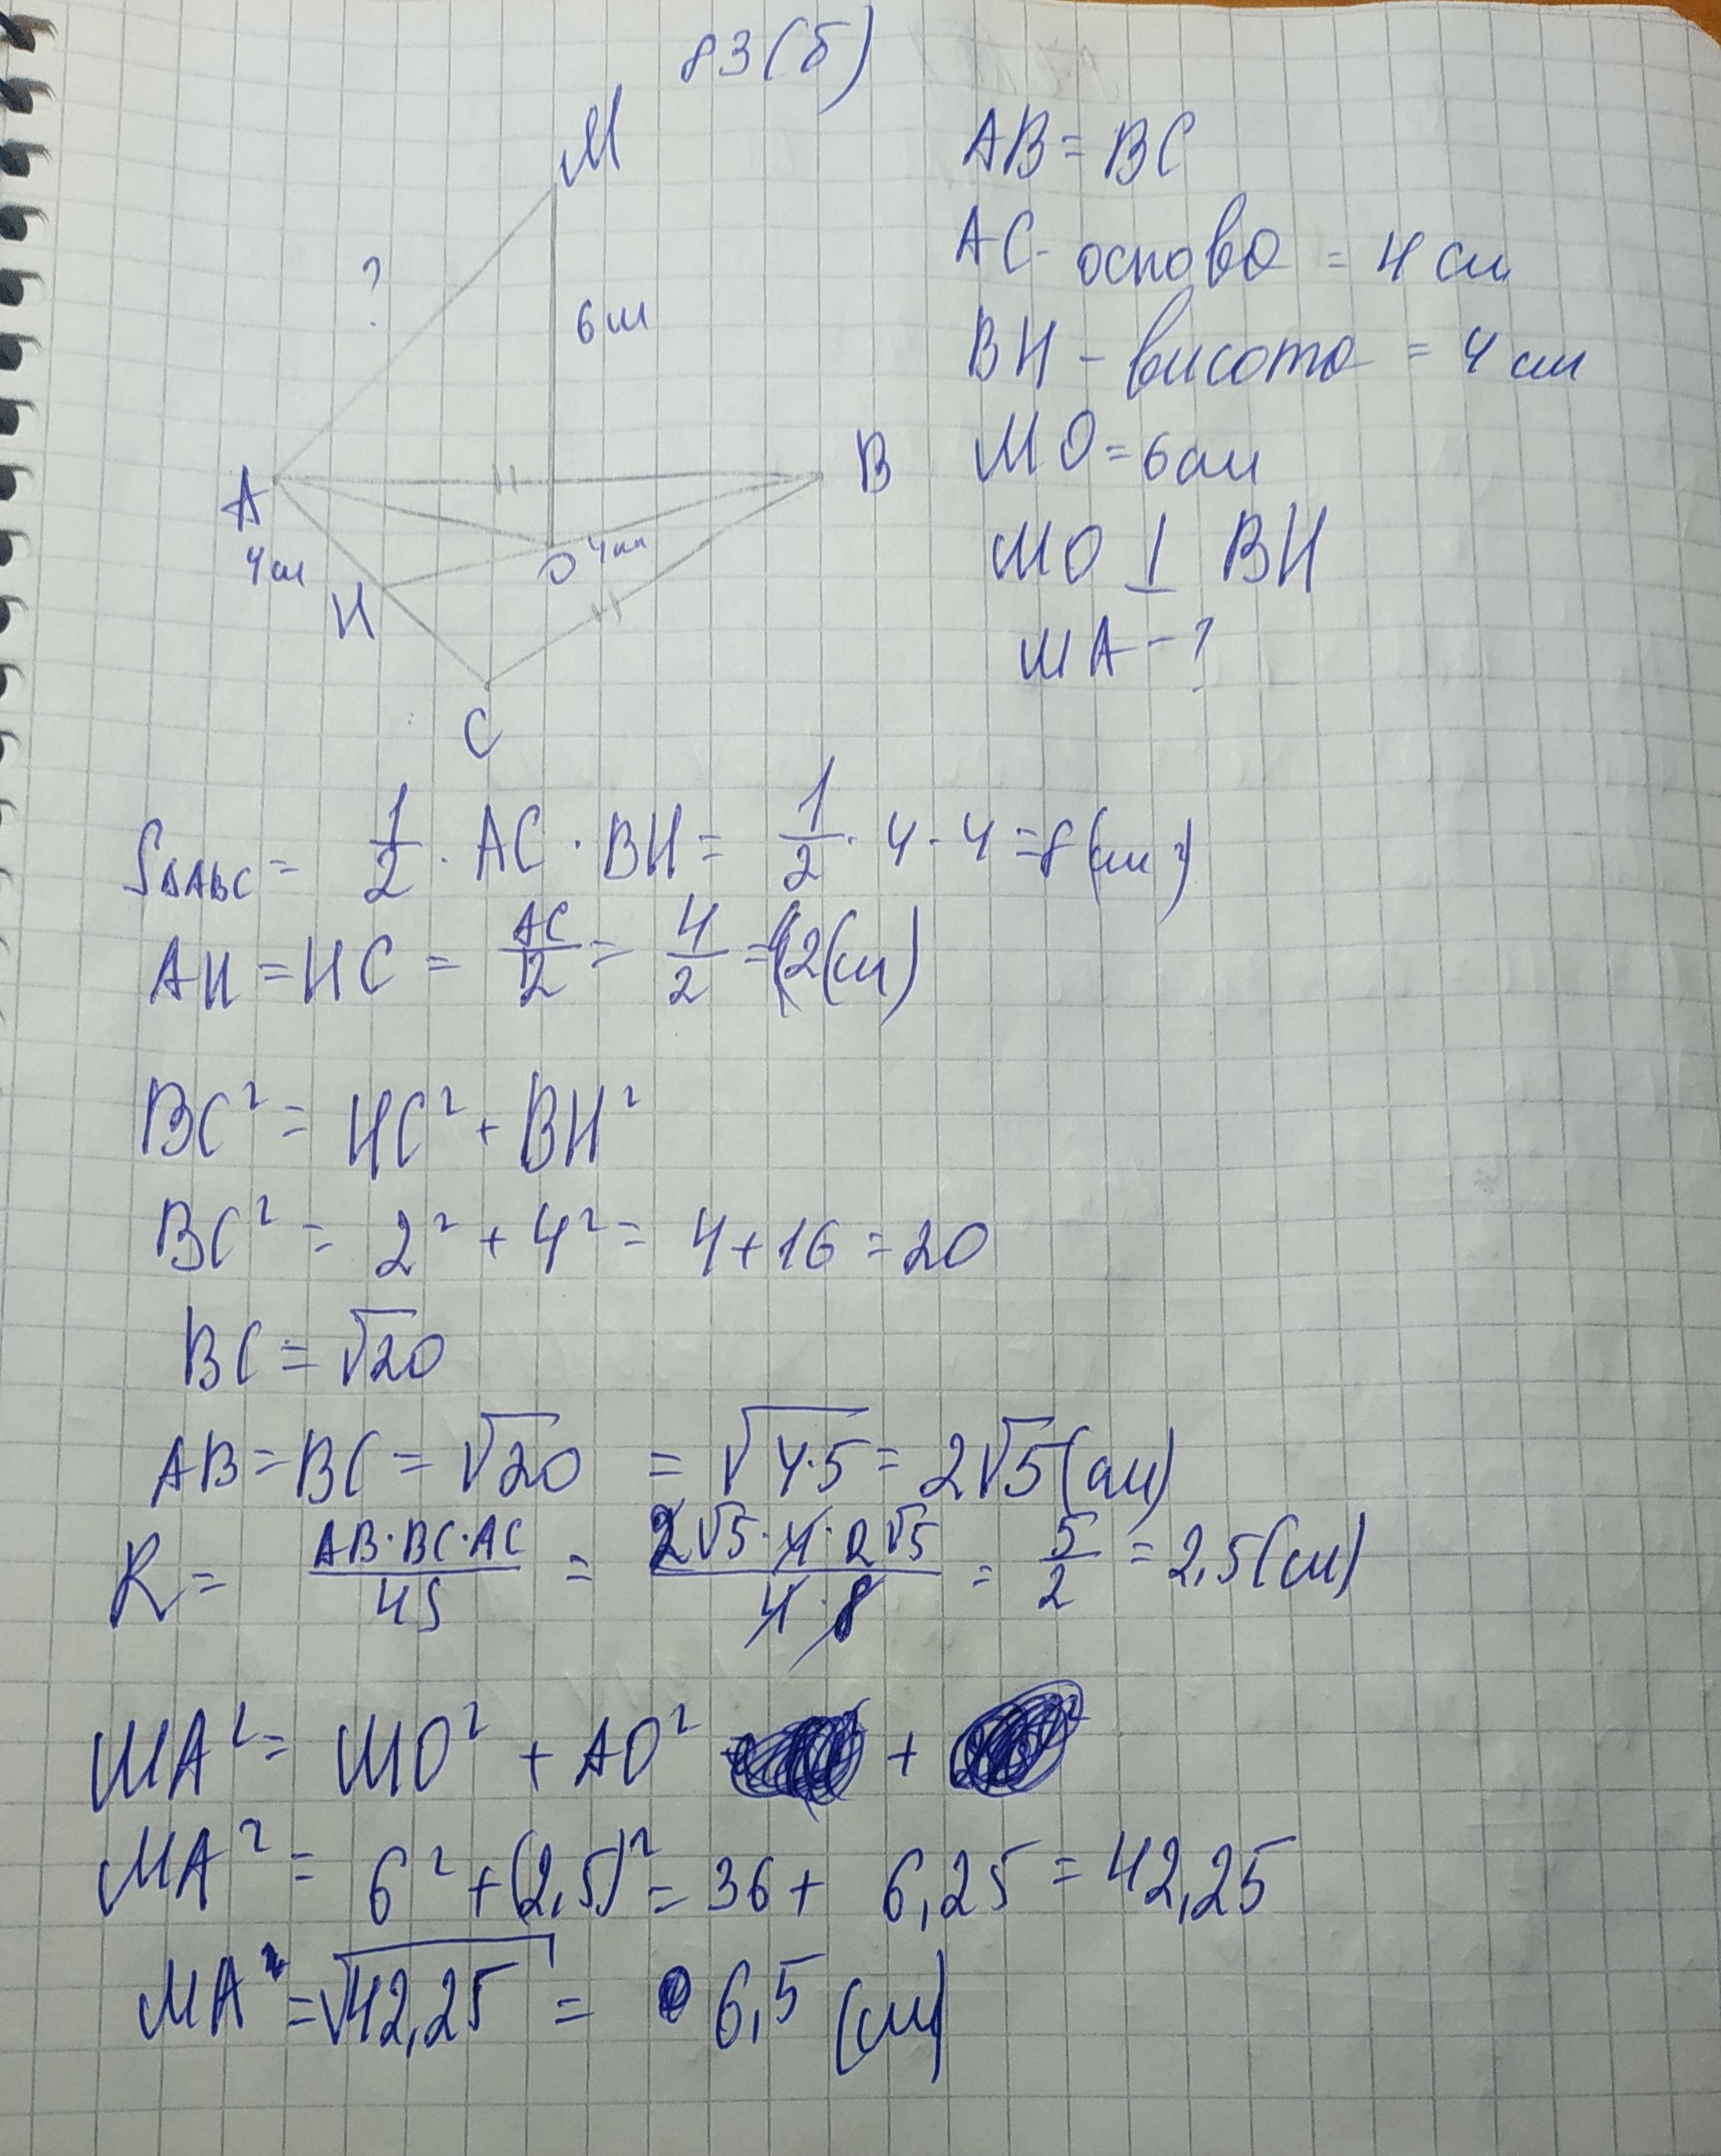 83(б)
M
?
6 см
A
B
4см
H
O 4см
C
AB = BC
AC - основа = 4 см
BH - висота = 4 см
MO = 6 см
MO ⊥ BH
MA - ?
S△ABC = 1/2 · AC · BH = 1/2 · 4 · 4 = 8 (см²)
AH = HC = AC/2 = 4/2 = 2 (см)
BC² = HC² + BH²
BC² = 2² + 4² = 4 + 16 = 20
BC = √20
AB = BC = √20 = √4·5 = 2√5 (см)
R = AB·BC·AC/4S = 2√5·4·2√5/4·8 = 5/2 = 2,5 (см)
MA² = MO² + AO² +
MA² = 6² + (2,5)² = 36 + 6,25 = 42,25
MA = √42,25 = 6,5 (см)